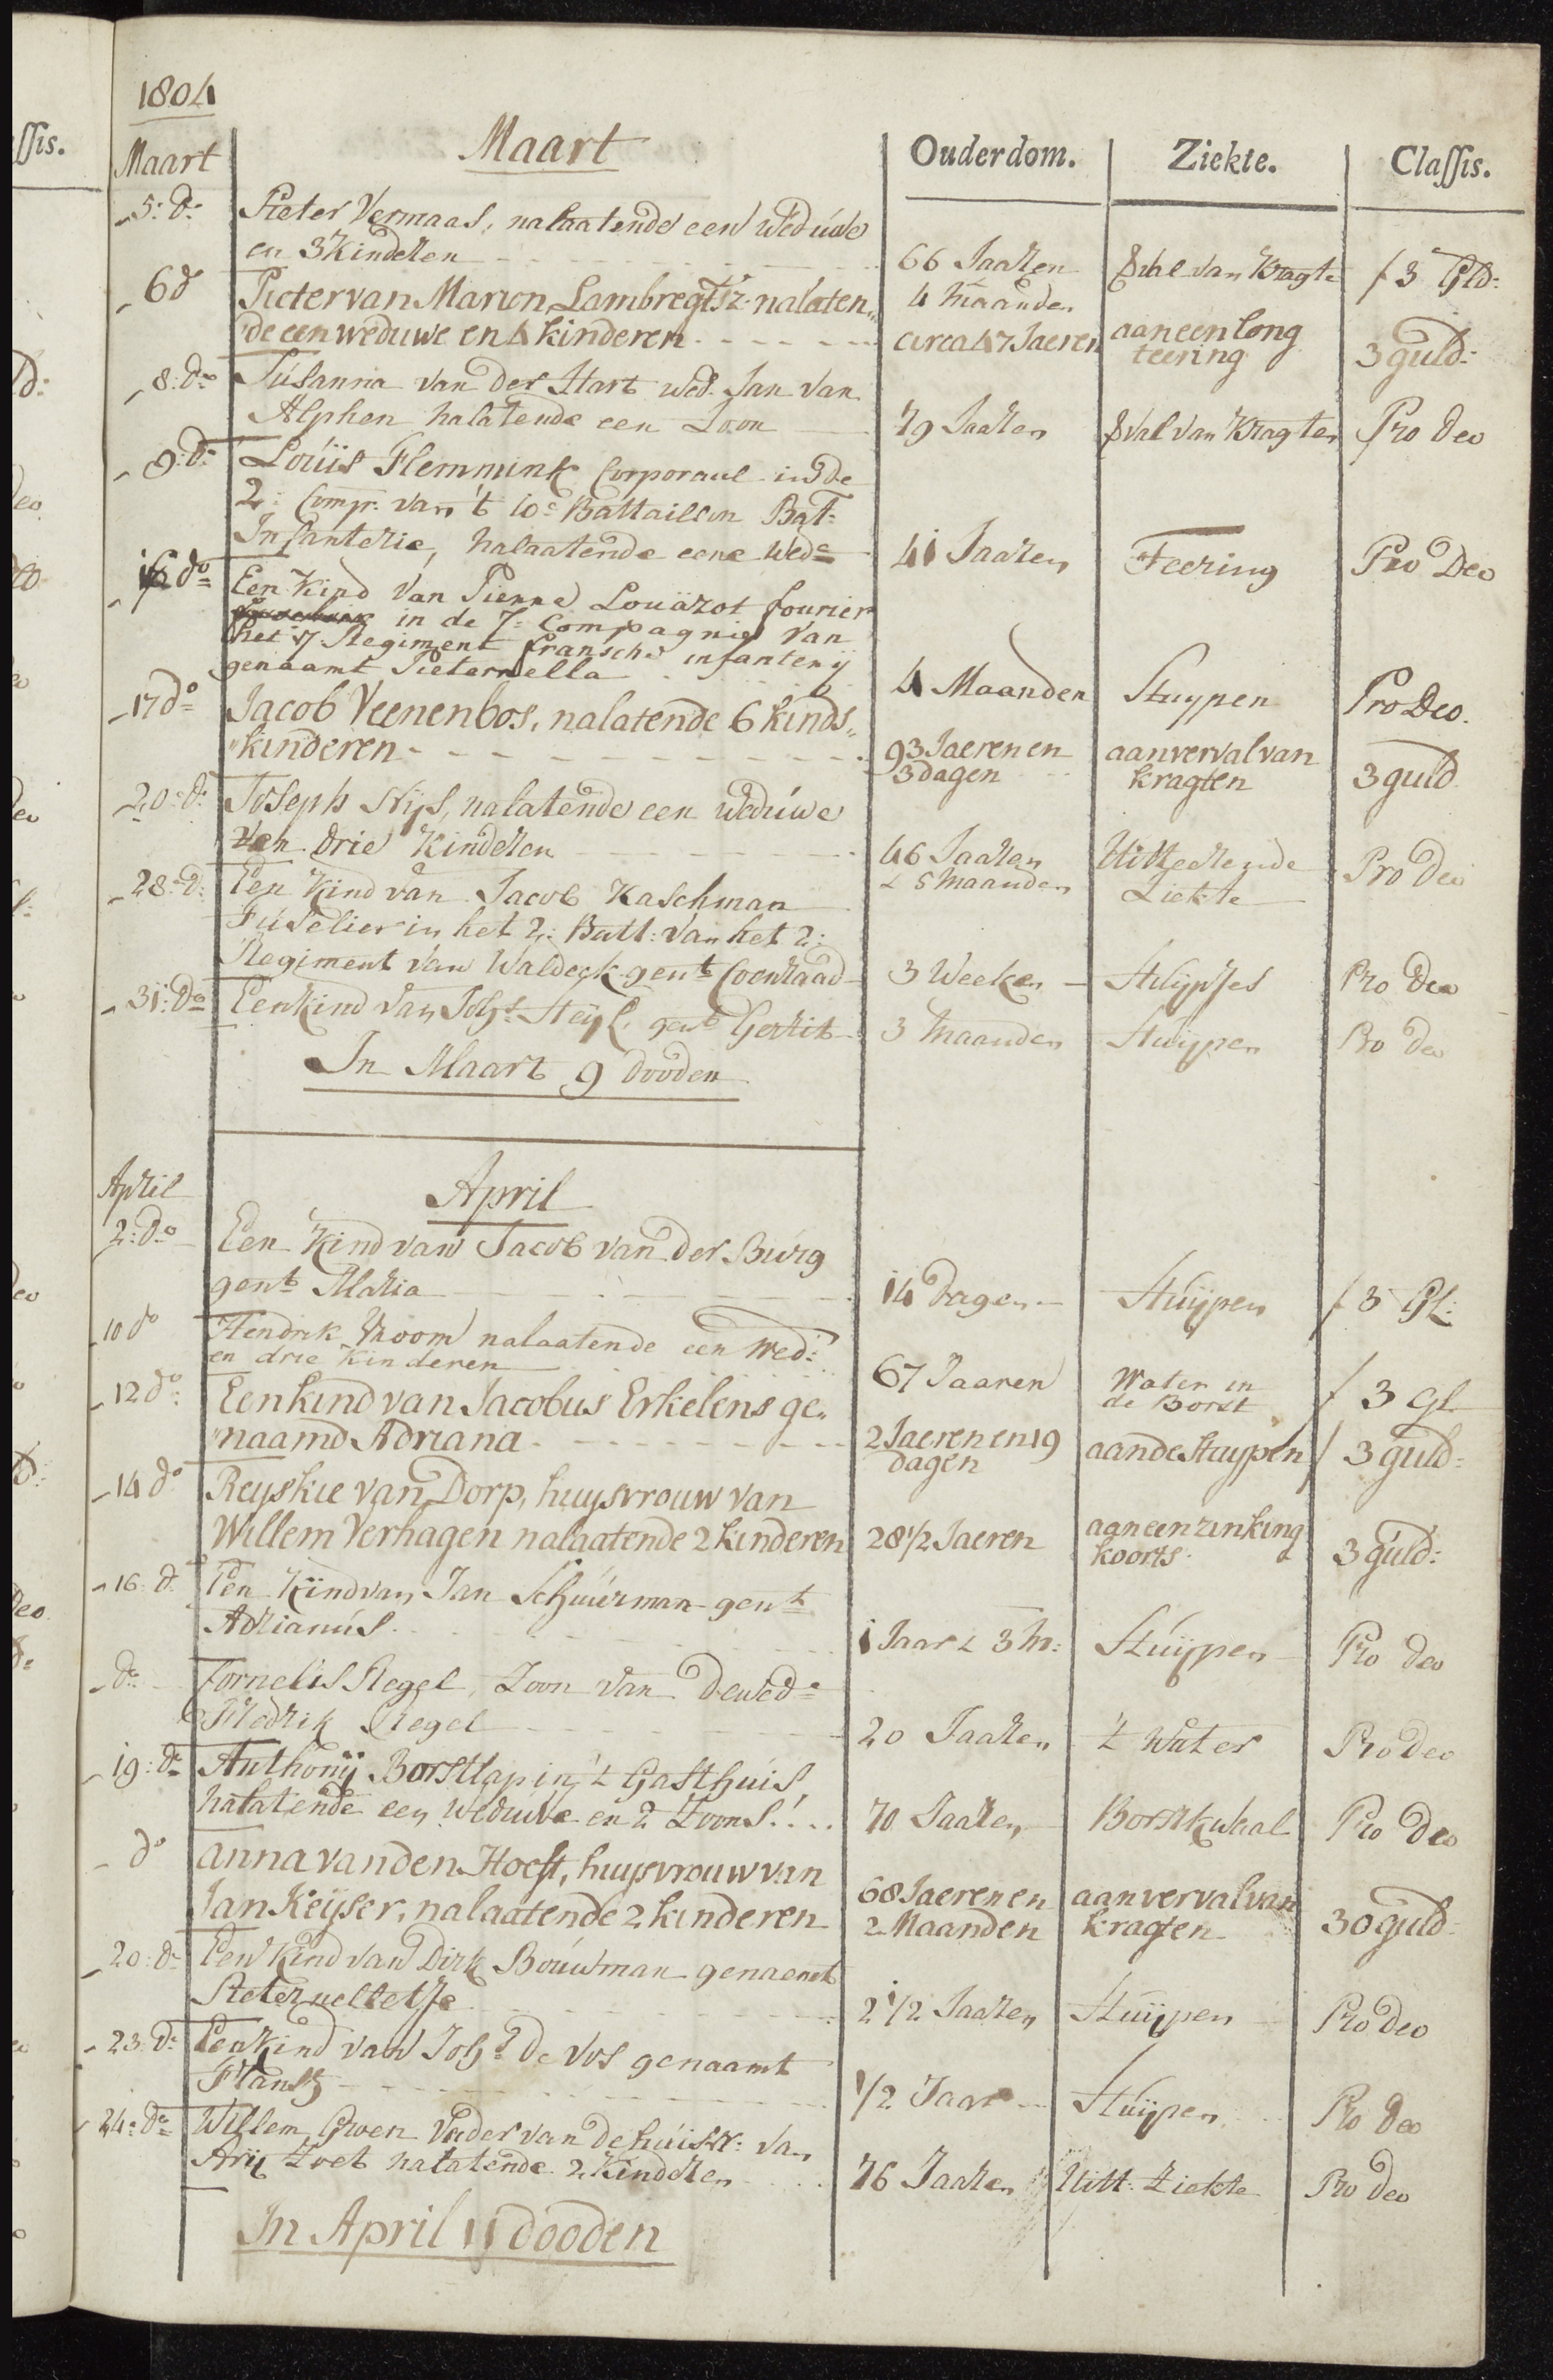 1804
Maart
Maart
Ouderdom.
Ziekte.
Classis.
5: do
Pieter Vermaas, nalaatende een weduwe
en 3 Kinderen
66 Jaaren
4 maanden
Verval van Kragte
f 3 Gld:
6 do
Pieter van Marion Lambregtsz. nalaten„
„de een weduwe en 4 kinderen
circa 47 Jaeren
aan een long
teering
3 guld:
8: do
Susanna van der Hart wed. Jan van
Alphen nalatende een Zoon
79 Jaaren
Verval van Kragten
Pro Deo
9: do
Louis Flemmink Corporaal in de
2: Comp: van 't 10e Battaillon Bat:
Infanterie, nalaatende eene Wede
41 Jaaren
Teering
Pro Deo
16 do
Een Kind van Pierre Louärot fourier
in de 7: Compagnie van
het 17 Regiment fransche infanterij
genaamt Pieternella
4 Maanden
Stuypen
Pro Deo.
17 do
Jacob Veenenbos, nalatende 6 kinds„
„kinderen
93 Jaeren en
3 dagen
aan verval van
kragten
3 guld
20: do
Joseph Nijs, nalatende een weduwe
en drie Kinderen
46 Jaaren
& 5 maanden
Uitteerende
Ziekte
Pro Deo
28: d:
Een Kind van Jacob Kaschman
Fuselier in het 2: Batt: van het 2:
Regiment van Waldeck gent Coenraad
3 Weeken
Stuypjes
Pro Deo
31: do
Een kind van Johs Heyl, gent Gerrit
3 maanden
Stuijpen
Pro Deo
In Maart 9 dooden
April
April
2: do
Een Kind van Jacob van der Burg
gent Maria
14 Dagen
Stuijpen
f 3 Gl:
10 do
Hendrik Vroom nalaatende een Wed:
en drie Kinderen
67 Jaaren
Water in
de Borst
f 3 Gl
12 do
Een kind van Jacobus Erkelens ge„
„naamd Adriana
2 Jaeren en 19
dagen
aan de Stuypen
f 3 guld:
14 do
Reyskie van Dorp, huysvrouw van
Willem Verhagen nalaatende 2 kinderen
28 1/2 Jaeren
aan een zinking
koorts.
3 guld:
16: d:
Een Kind van Jan Schuurman gent
Adrianus
1 Jaar & 3 M:
Stuijpen
Pro Deo
do
Cornelis Regel, Zoon van de wede
Fredrik Regel
20 Jaaren
't Water
Pro Deo
19: do
Anthonij Borstlap in 't Gasthuis,
nalatende een weduwe en 2 Zoons!
70 Jaaren
Borstkwaal
Pro Deo
do
Anna van den Hoeft, huysvrouw van
Jan Keyser, nalaatende 2 kinderen
68 Jaeren en
2 Maanden
aan verval van
kragten
30 guld:
20: do
Een Kind van Dirk Bouwman genaemt
Pieternelletje
2 1/2 Jaaren
Stuijpen
Pro Deo
23: do
Een Kind van Johs de Vos genaamt
Fransz
1/2 Jaar
Stuijpen
Pro Deo
24: do
Willem Gwen Vader van de huisvr: van
Arij Zoet nalatende 2 Kinderen
76 Jaaren
Uitt: Ziekte
Pro Deo
In April 11 dooden